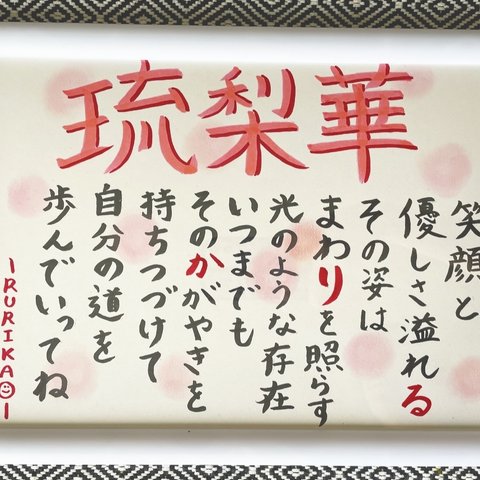 琉梨華
笑顔と
優しさ溢れる
その姿は
まわりを照らす
光のような存在
いつまでも
そのかがやきを
持ちつづけて
自分の道を
歩んでいってね
-RURIKA☺-